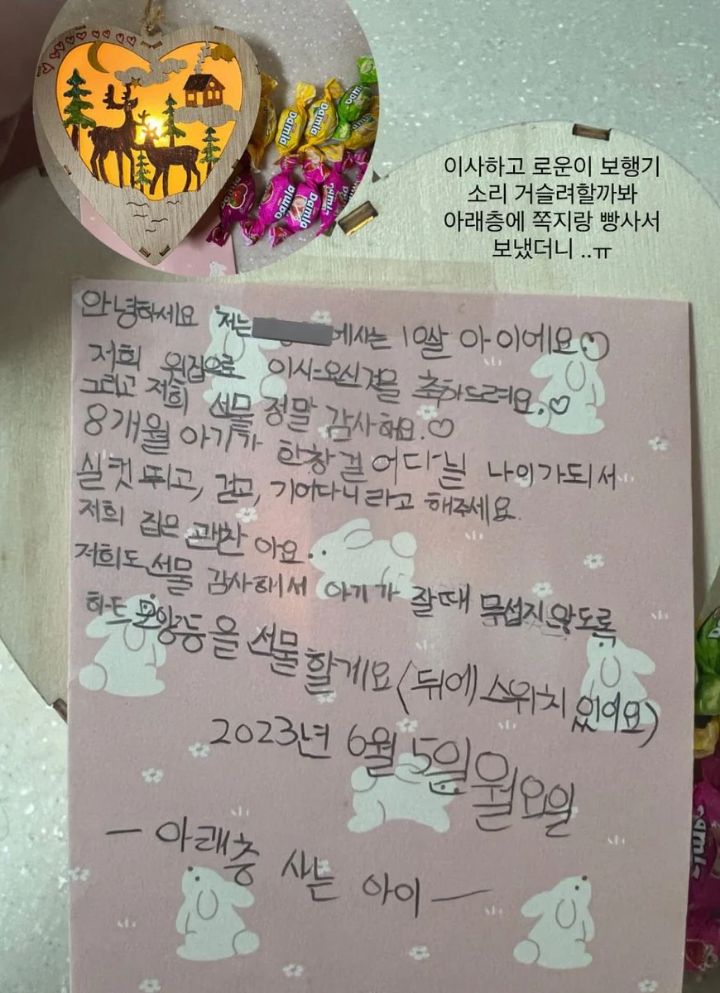 이사하고 로운이 보행기
소리 거슬려할까봐
아래층에 쪽지랑 빵사서
보냈더니 ..ㅠ
Damla
Damla
Damla
Damla
안녕하세요 저는 에사는 10살 아이에요♡
저희 윗집으로 이사오신것을 축하드려요.♡
그리고 저희 선물 정말 감사해요.♡
8개월 아기가 한창 걸어다닐 나이가되서
실컷 뛰고, 걷고, 기어다니라고 해주세요.
저희 집은 괜찬아요.
저희도 선물 감사해서 아기가 잘때 무섭지않도록
하트모양등을 선물할게요(뒤에 스위치 있어요)
2023년 6월 5일 월요일
— 아래층 사는 아이 —